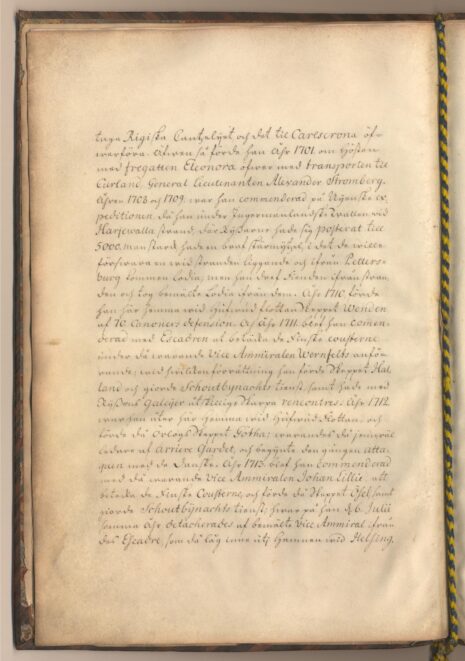 tuga Rigiska Cantzelyet och det til Carlscrona öf-
werföra. Äfwen så förde han Åhr 1701 om Hösten
med fregatten Eleonora öfwer med transporten til
Curland, General Lieutenanten Alexander Stromberg.
Åhren 1708 och 1709. war han commenderad på Nyenske ex-
peditionen, då han under Ingermanlandske Wallen wid
Harjewalla strand, där Ryssarne hade sig posterat till
5000. man starck, hade en hård skärmytzel, i det de wille
försware en wid stranden liggande och ifrån Petters-
burg kommen Lodia, men han dref Fienden ifrån stran-
den och tog bemälte Lodia ifrån dem. Åhr 1710. förde
han här hemma wid Hufwud flottan Skeppet Wenden
af 70. Canoners defension. Åhr 1711. blef han comen-
derad med Escadren at betäcka de Finske cousterne
under då warande Vice Ammiralen Wernfelts anfö-
rande; wid hwilken förrättning han förde Skeppet Hal-
land och giorde Schoutbynachts tienst, samt hade med
Ryssens Galejer åtskillige skarpa rencontres. Åhr 1712.
war han åter här hemma wid Hufwud flottan, och
förde då Orlogs Skeppet Gotha; warandes då jemwäl
ledare af Arriere Gardet, och begynte den gången atta-
quen med de Danske. Åhr 1713. blef han commenderad
med då warande Vice Ammiralen Johan Lillie, att
betäcka de Finske Cousterne, och förde då Skeppet Ösel samt
giorde Schoutbynachts tienst, hwar på han d. 6. Julii
samma Åhr detacherades af bemälte Vice Ammiral ifrån
des Escadre, som då låg inne uti Hamnen wid Helsing-